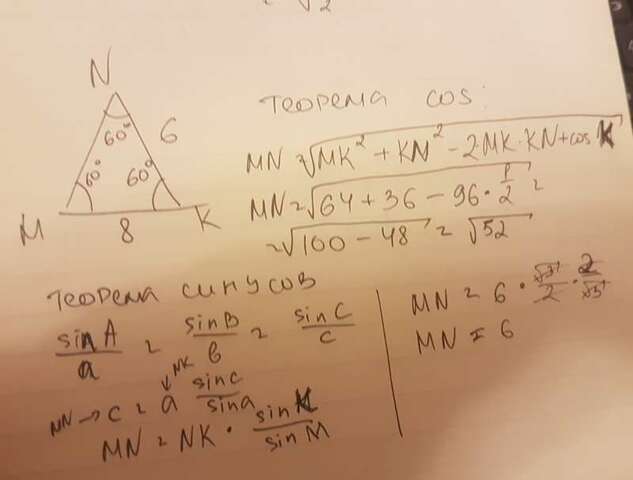 = √2
N
60°
6
60°
60°
M
8
K
теорема cos:
MN = √MK² + KN² - 2·MK·KN + cos K
MN = √64 + 36 - 96 · 1/2 =
= √100 - 48 = √52
теорема синусов
sin A / a = sin B / b = sin C / c
NK
MN → c = a sin c / sin a
MN = NK · sin K / sin M
MN = 6 · √3 / 2 · 2 / √3
MN = 6